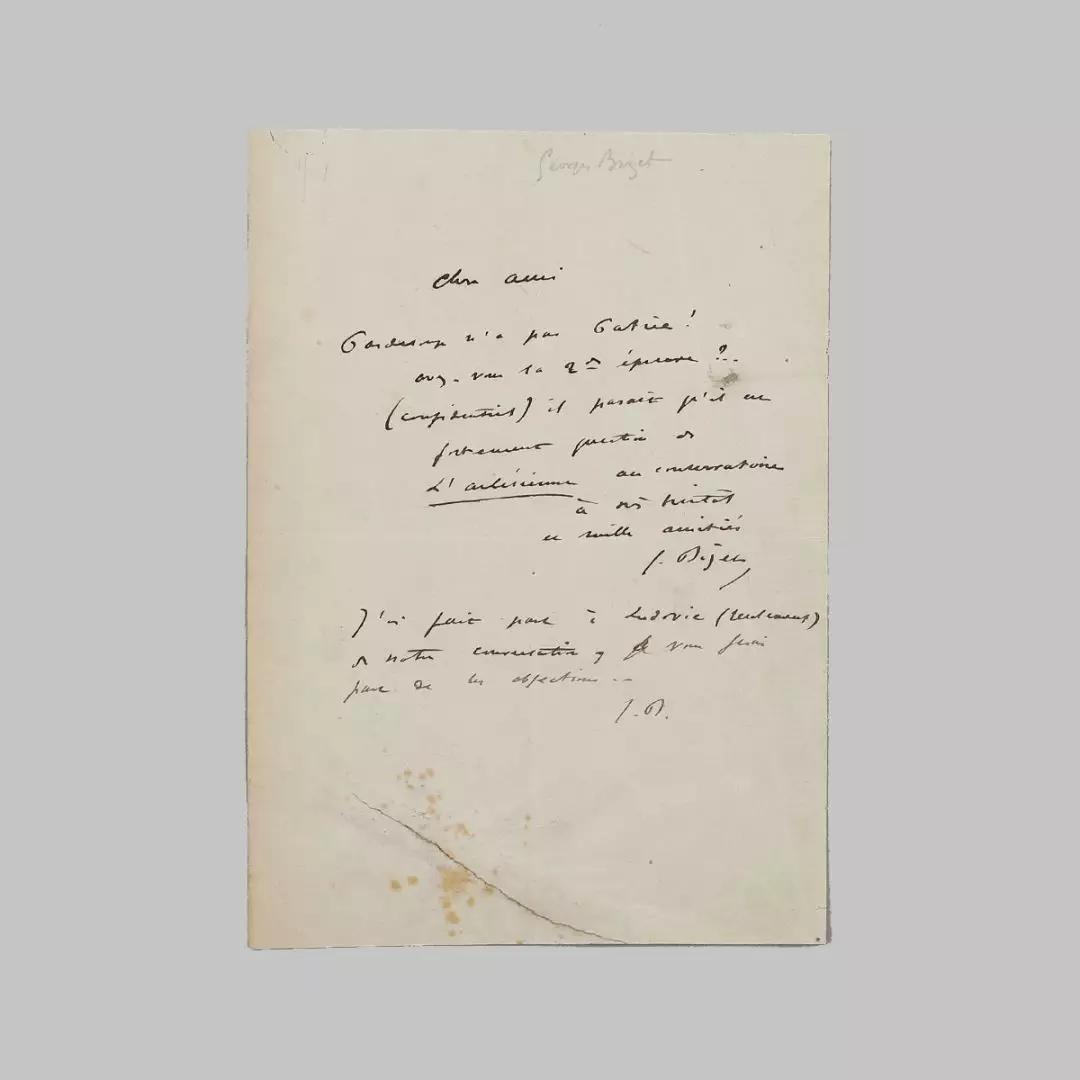 Georges Bizet
Cher ami
n'a pas Gabrié !
avez-vous la 2de épreuve ?..
(confidentiel) il paraît qu'il est
fortement question de
L'arlésienne au conservatoire
à bientôt
et mille amitiés
G. Bizet
J'ai fait part à Ludovic (seulement)
de notre conversation, je vous ferai
part de ses objections ..
G.B.